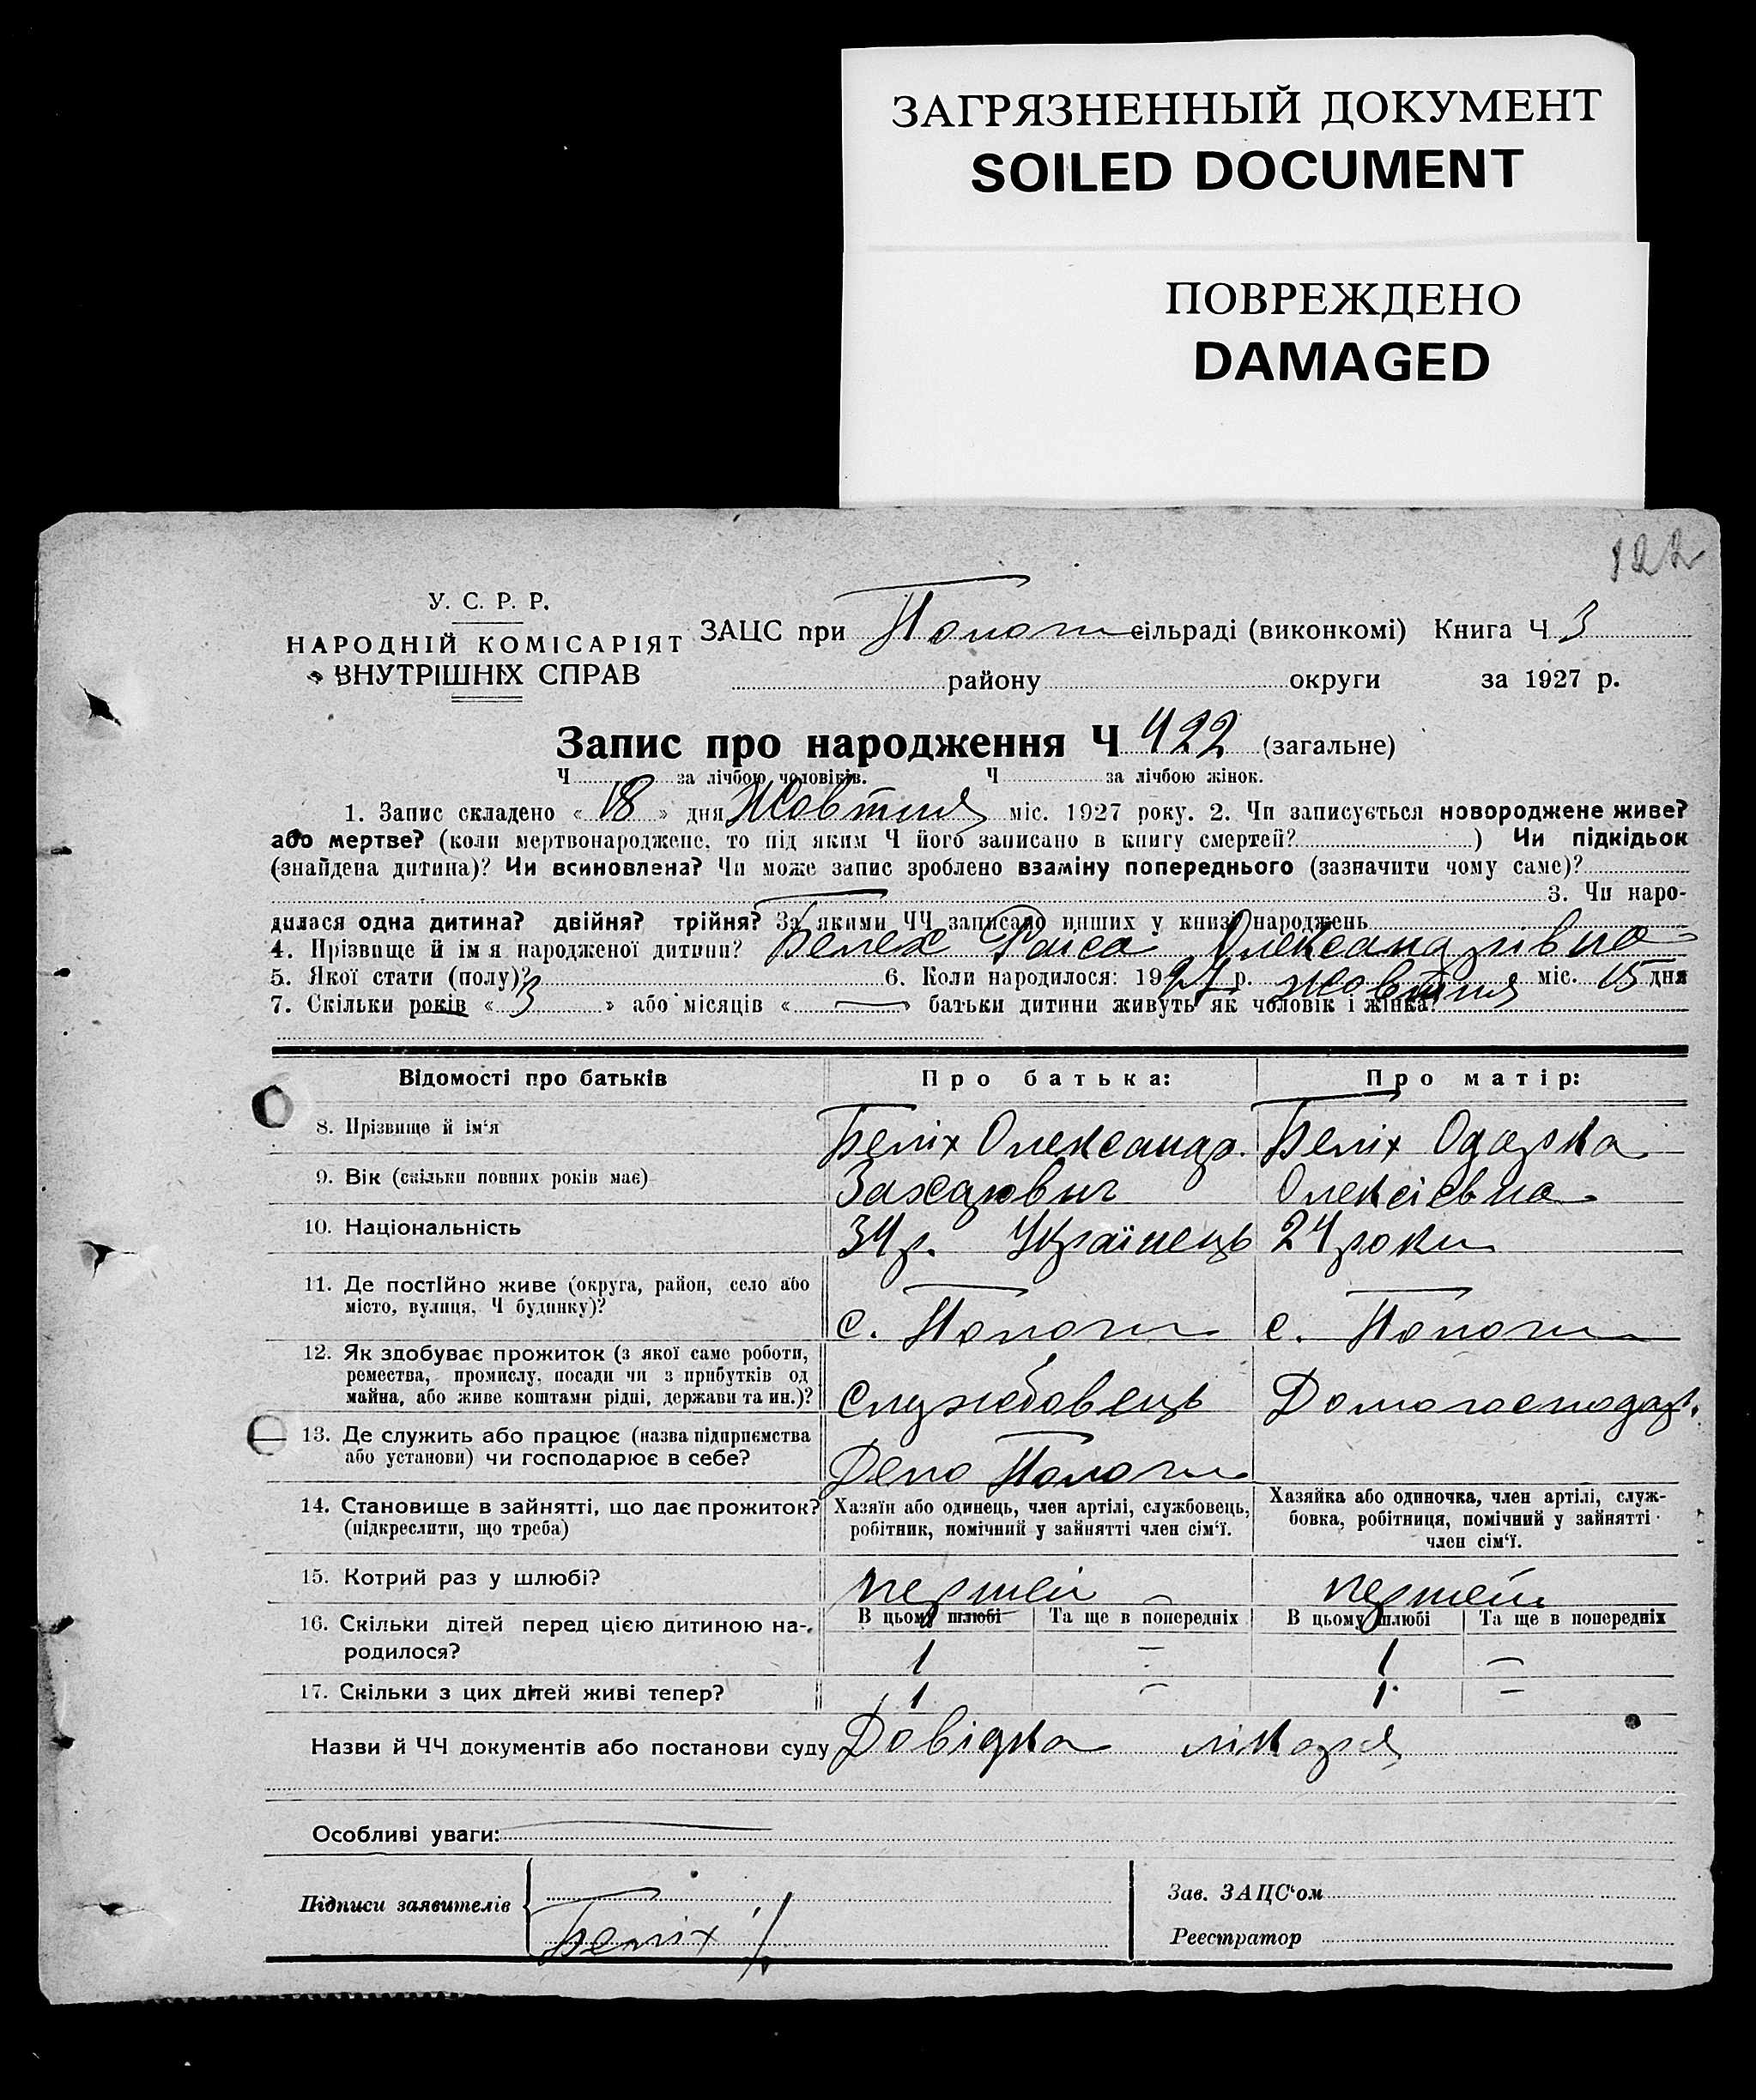 ЗАГРЯЗНЕННЫЙ ДОКУМЕНТ
SOILED DOCUMENT
ПОВРЕЖДЕНО
DAMAGED
122
У. С. Р. Р.
НАРОДНІЙ КОМІСАРІЯТ
ВНУТРІШНІХ СПРАВ
ЗАЦС при Пологи сільраді (виконкомі) Книга Ч 3
району округи за 1927 р.
Запис про народження Ч 422 (загальне)
Ч за лічбою чоловіків. Ч за лічбою жінок.
1. Запис складено « 18 » дня Жовтня міс. 1927 року. 2. Чи записується новороджене живе?
або мертве? (коли мертвонароджене, то під яким Ч його записано в книгу смертей? ) Чи підкідьок
(знайдена дитина)? Чи всиновлена? Чи може запис зроблено взаміну попереднього (зазначити чому саме)?
3. Чи наро-
дилася одна дитина? двійня? трійня? За якими ЧЧ записано инших у книзі народжень
4. Прізвище й ім я народженої дитини? Белех Раїса Олександрівна
5. Якої статі (полу)? 6. Коли народилося: 1927 р. Жовтня міс. 15 дня
7. Скільки років « 3 » або місяців « — » батьки дитини живуть як чоловік і жінка?
Відомості про батьків Про батька: Про матір:
8. Прізвище й ім'я Беліх Олександр. Беліх Одарка
9. Вік (скільки повних років має) Захарович Олексієвна
10. Національність 34 р. Українець 24 роки
11. Де постійно живе (округа, район, село або
місто, вулиця, Ч будинку)? с. Пологи с. Пологи
12. Як здобуває прожиток (з якої саме роботи,
ремества, промислу, посади чи з прибутків од
майна, або живе коштами рідні, держави та ин.)? Службовець Домогосподар.
13. Де служить або працює (назва підприємства
або установи) чи господарює в себе? Депо Пологи
14. Становище в зайнятті, що дає прожиток?
(підкреслити, що треба)
Хазяїн або одинець, член артілі, службовець,
робітник, помічний у зайнятті член сім'ї.
Хазяйка або одиночка, член артілі, служ-
бовка, робітниця, помічний у зайнятті
член сім'ї.
15. Котрий раз у шлюбі? перший перший
В цьому шлюбі Та ще в попередніх В цьому шлюбі Та ще в попередніх
16. Скільки дітей перед цією дитиною на-
родилося? 1 — 1 —
17. Скільки з цих дітей живі тепер? 1 — 1 —
Назви й ЧЧ документів або постанови суду Довідка лікаря
Особливі уваги:
Підписи заявителів Беліх
Зав. ЗАЦС'ом
Реєстратор